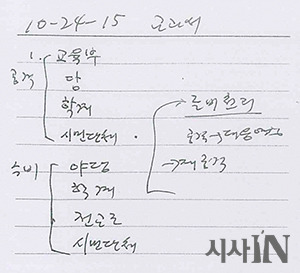 10-24-15
1. 교육부
공격
당
학계
시민단체
수비
야당
학계
전교조
시민단체
준비 논리
공격→대응예상
→재공격
시사IN